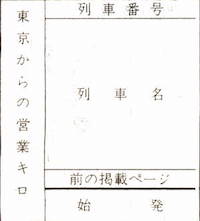 東京からの営業キロ
列車番号
列車名
前の掲載ページ
始発